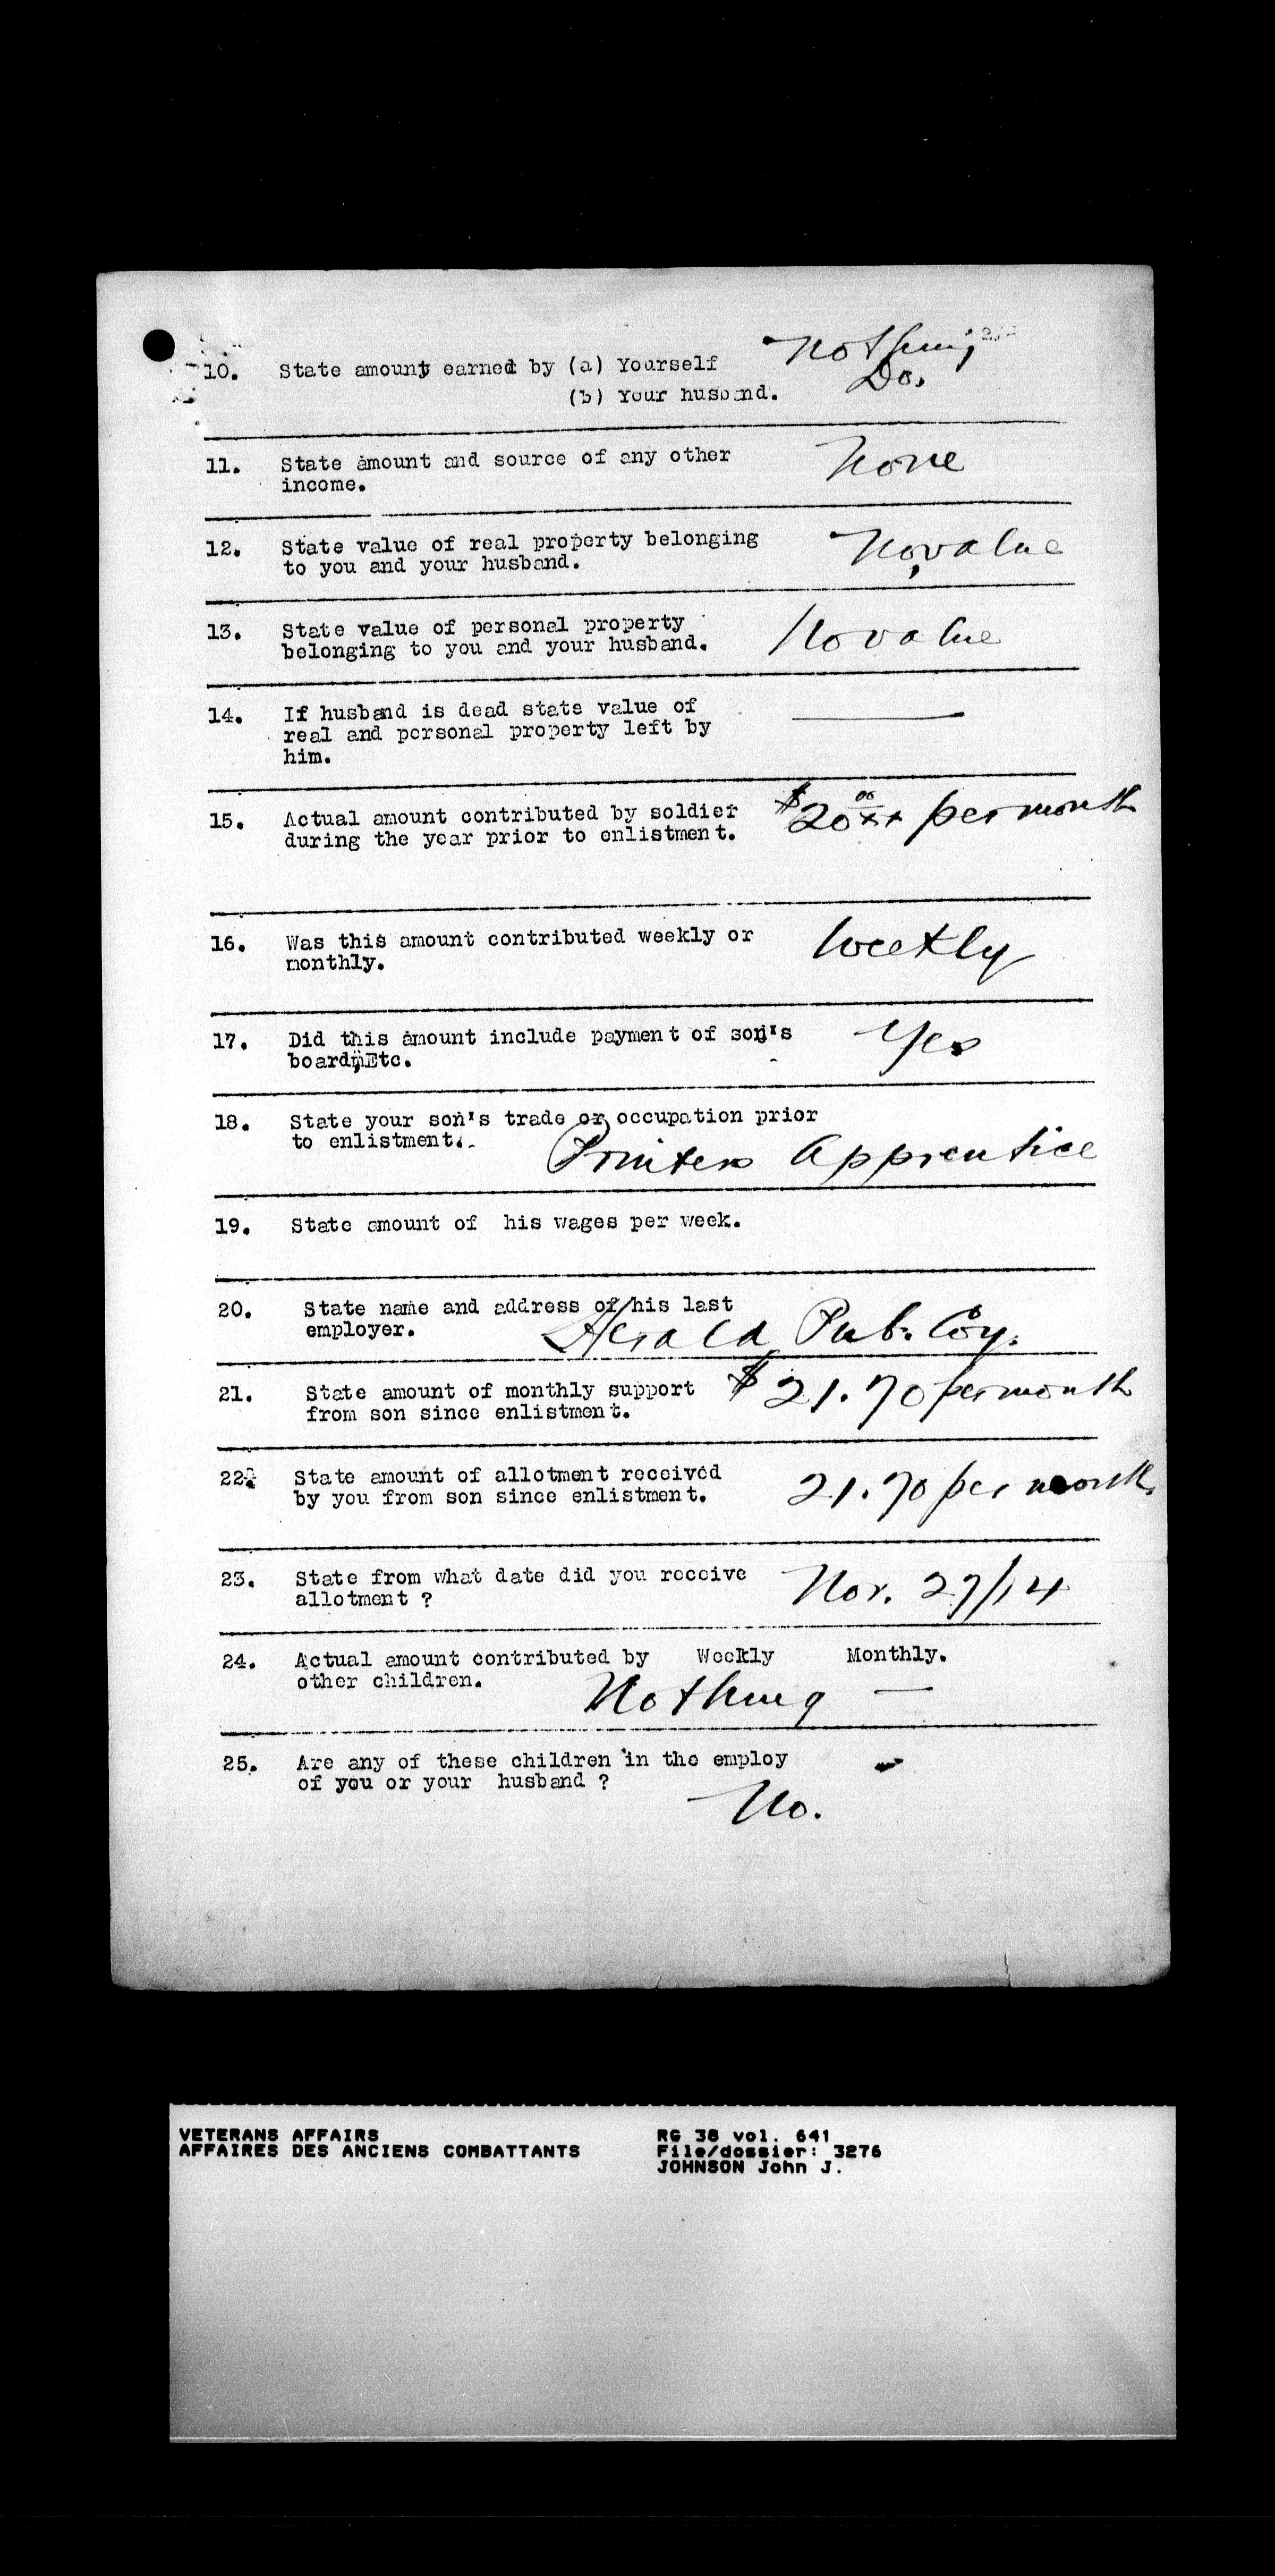 10. State amount earned by (a) Yourself Nothing
(b) Your husband. Do.
11. State amount and source of any other None
income.
12. State value of real property belonging No value
to you and your husband.
13. State value of personal property No value
belonging to you and your husband.
14. If husband is dead state value of
real and personal property left by
him.
15. Actual amount contributed by soldier $20 00/xx per month
during the year prior to enlistment.
16. Was this amount contributed weekly or Weekly
monthly.
17. Did this amount include payment of son's Yes
board, Etc.
18. State your son's trade or occupation prior
to enlistment. Printers Apprentice
19. State amount of his wages per week.
20. State name and address of his last
employer. Herald Pub. Coy.
21. State amount of monthly support $21.70 per month
from son since enlistment.
22. State amount of allotment received 21.70 per month.
by you from son since enlistment.
23. State from what date did you receive Nov. 27/14
allotment ?
24. Actual amount contributed by Weekly Monthly.
other children. Nothing —
25. Are any of these children in the employ
of you or your husband ?
No.
VETERANS AFFAIRS RG 38 vol. 641
AFFAIRES DES ANCIENS COMBATTANTS File/dossier: 3276
JOHNSON John J.